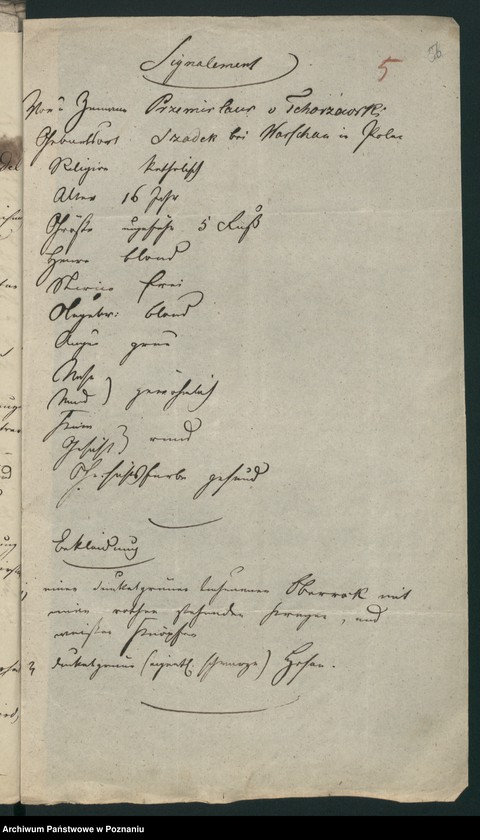 5
76
Signalement
Vor u Zuname Przemislaus v Tchorzewski
Geburtsort Szadek bei Warschau in Polen
Religion katholisch
Alter 16 Jahr
Größe ungefähr 5 Fuß
Haare blond
Stirn frei
Augenbr: blond
Augen grau
Nase
Mund ) gewöhnlich
Kinn
Gesicht } rund
Gesichtsfarbe gesund
Bekleidung
1, einen dunkelgrünen tuchenen Oberrock mit
einem rothen stehenden Kragen, und
weißen Knöpfen
2, dunkelgraue (eigentl. schwarze) Hosen.
Archiwum Państwowe w Poznaniu